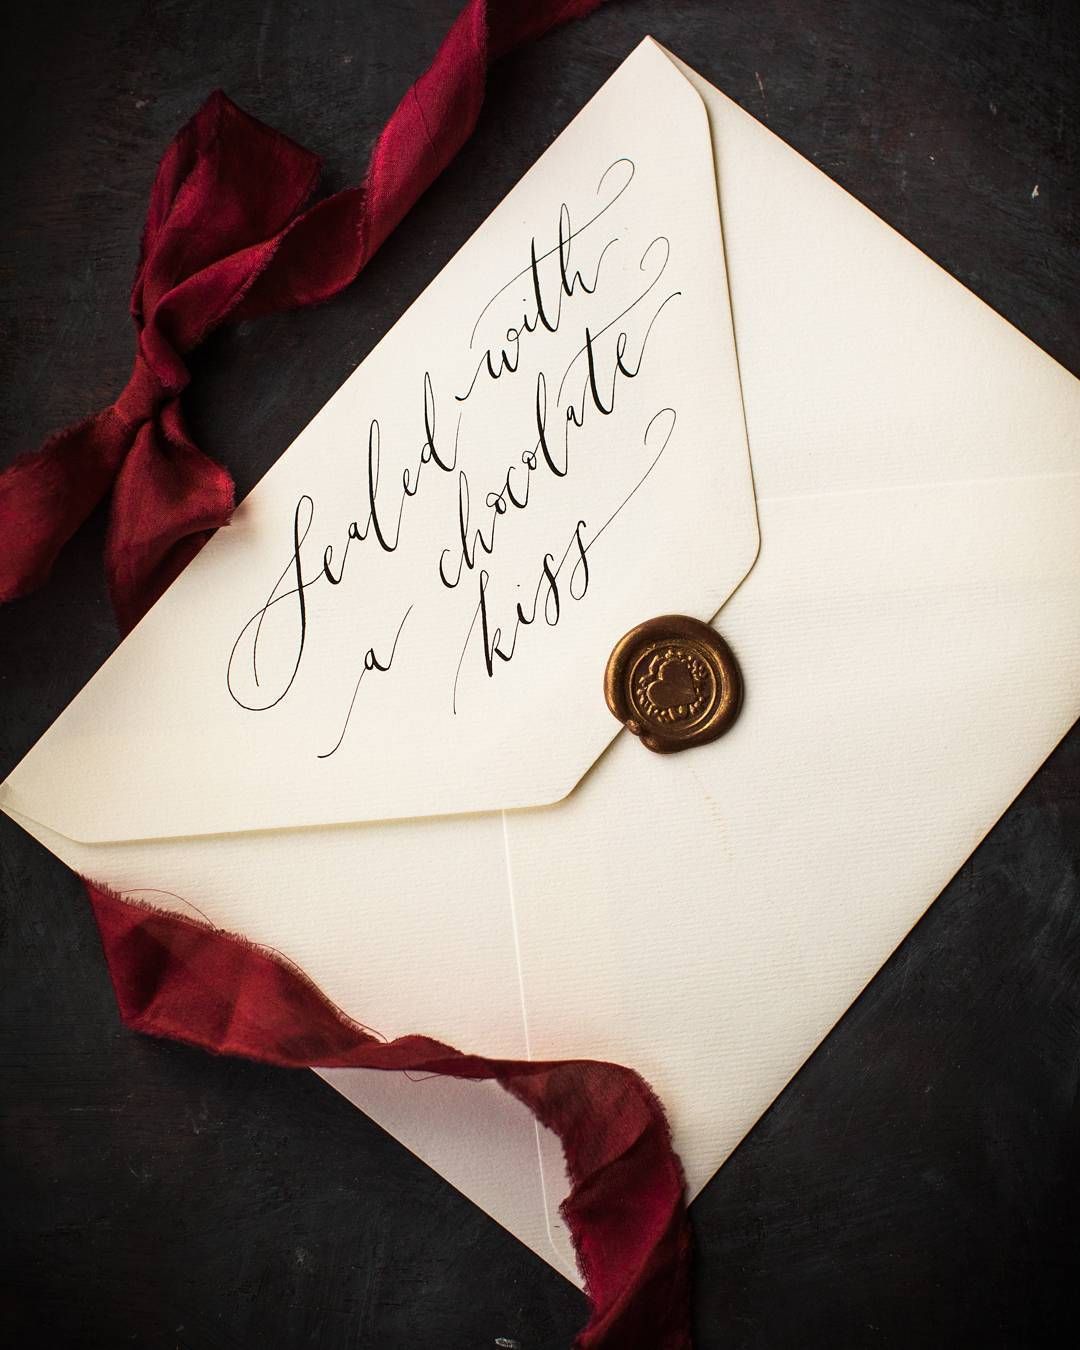 Sealed with
a chocolate
kiss